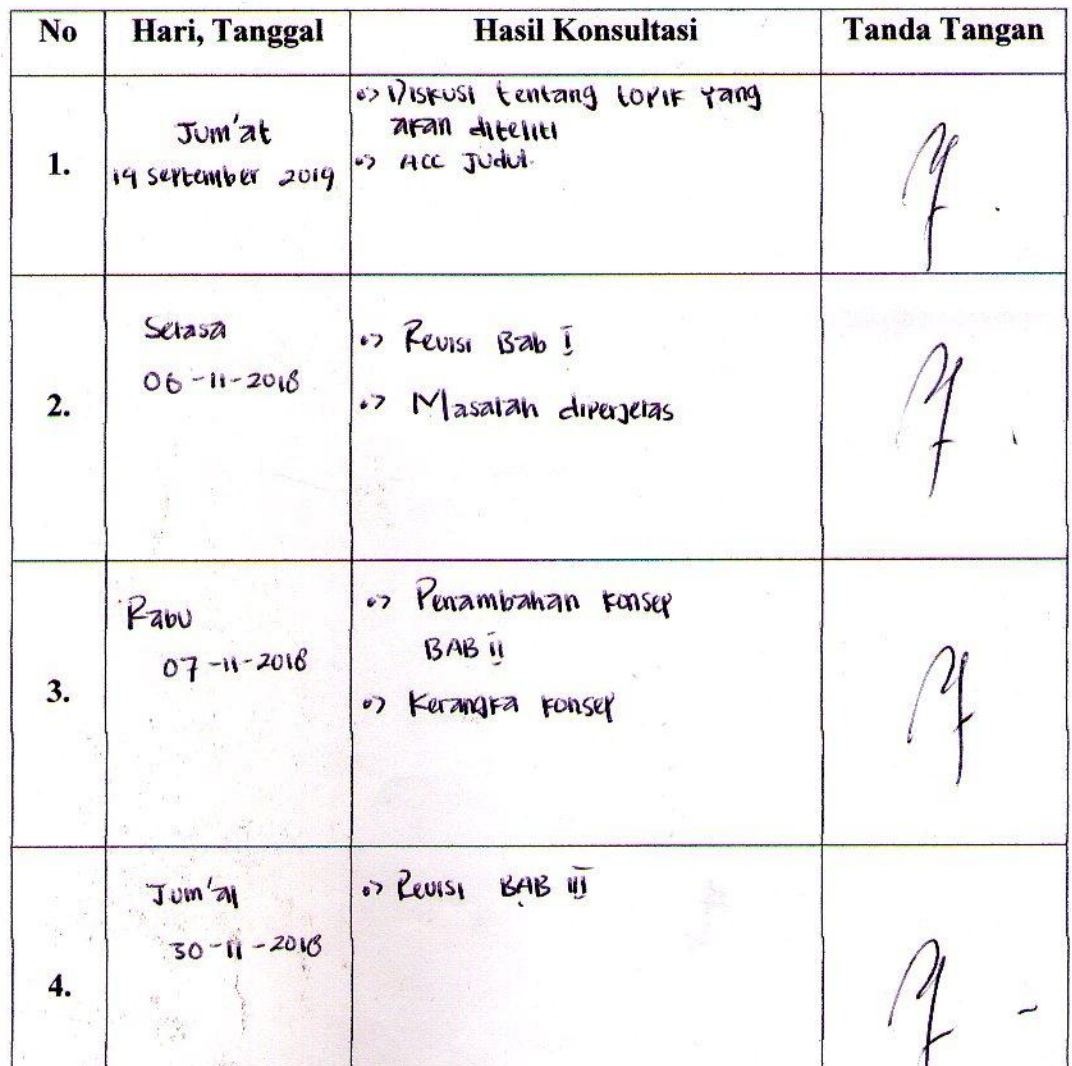 No Hari, Tanggal Hasil Konsultasi Tanda Tangan
1. Jum'at
19 September 2019
•> Diskusi tentang topik yang
akan diteliti
•> Acc Judul.
2. Selasa
06-11-2018
•> Revisi Bab I
•> Masalah diperjelas
3. Rabu
07-11-2018
•> Penambahan konsep
BAB II
•> Kerangka konsep
4. Jum'at
30-11-2018
•> Revisi BAB III